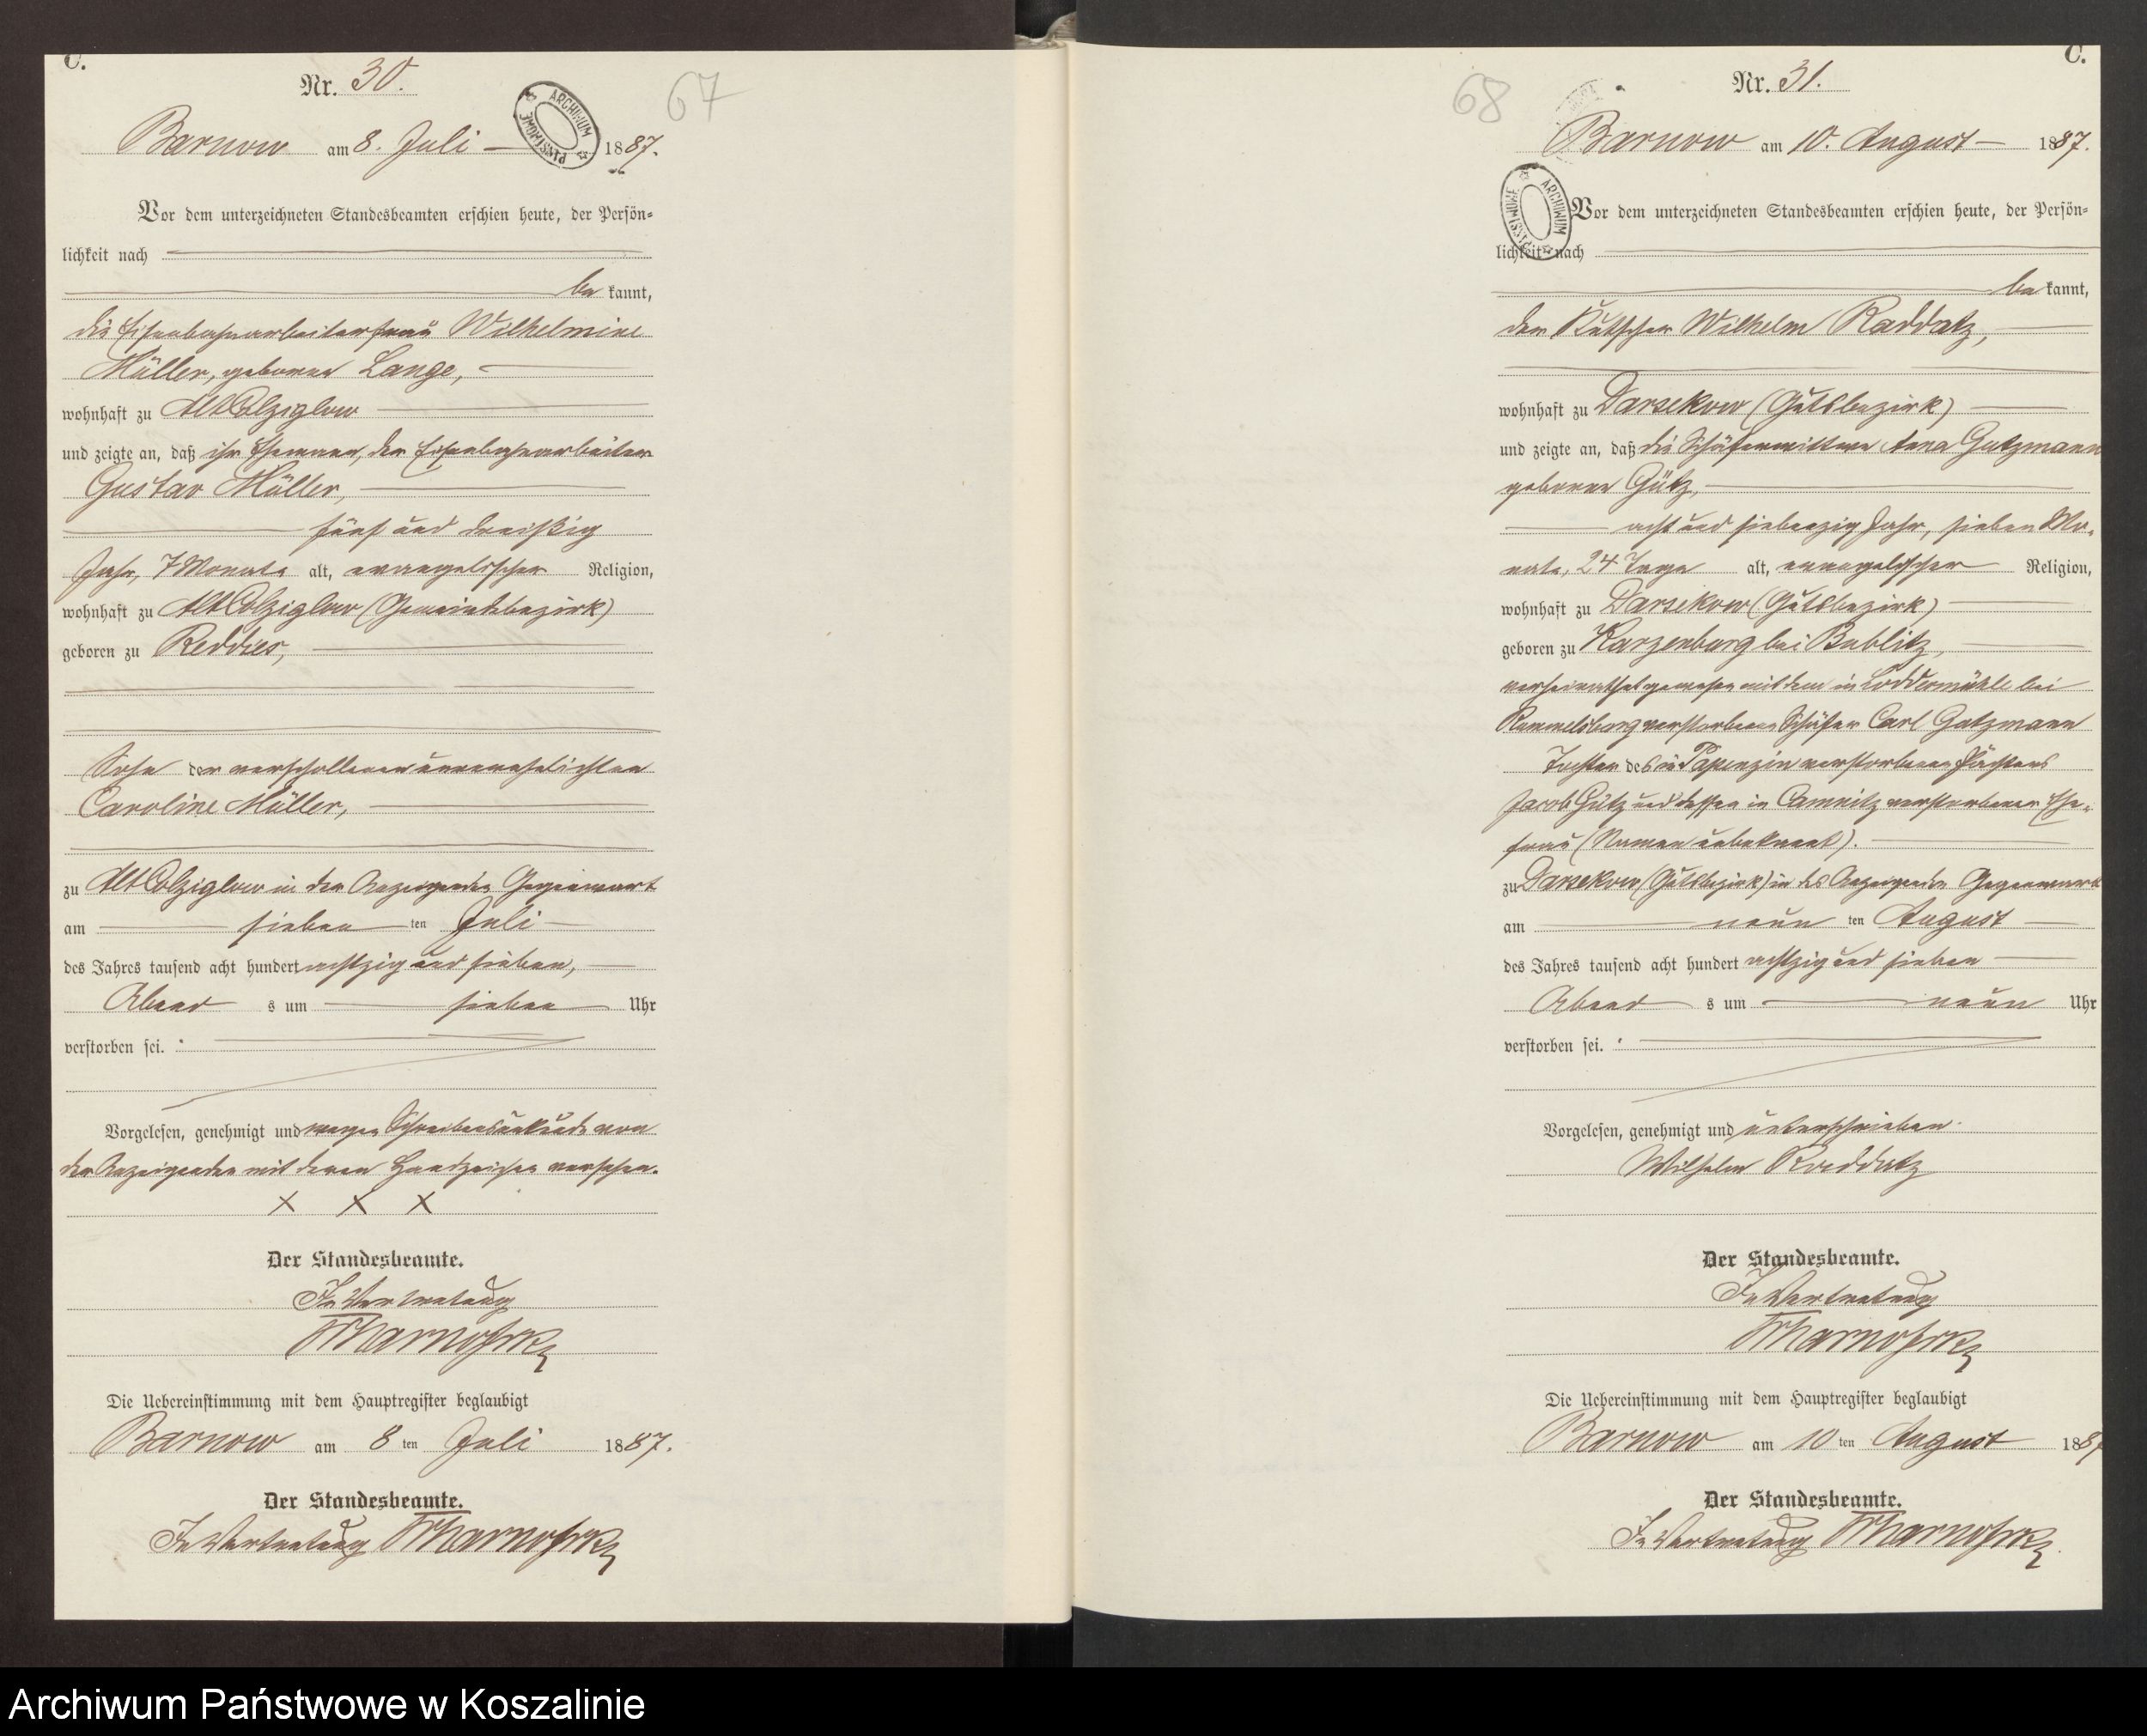 C.
Nr. 30.
67
ARCHIWUM PAŃSTWOWE
Barnow am 8. Juli 1887.
Vor dem unterzeichneten Standesbeamten erschien heute, der Persön=
lichkeit nach
be kannt,
die Eisenbahnarbeiterfrau Wilhelmine
Müller, geborene Lange,
wohnhaft zu Alt Colziglow
und zeigte an, daß ihr Ehemann, der Eisenbahnarbeiter
Gustav Müller,
fünf und dreißig
Jahr, 7 Monate alt, evangelischer Religion,
wohnhaft zu Alt Colziglow (Gemeindebezirk)
geboren zu Reddies,
Sohn der verschollenen unverehelichten
Caroline Müller,
zu Alt Colziglow in der Anzeigenden Gegenwart
am sieben ten Juli
des Jahres tausend acht hundert achtzig und sieben,
Abend s um sieben Uhr
verstorben sei.
Vorgelesen, genehmigt und wegen Schreibensunkunde von
der Anzeigenden mit deren Handzeichen versehen.
X X X
Der Standesbeamte.
In Vertretung
Die Uebereinstimmung mit dem Hauptregister beglaubigt
Barnow am 8 ten Juli 1887.
Der Standesbeamte.
In Vertretung
C.
Nr. 31.
68
Barnow am 10. August 1887.
ARCHIWUM PAŃSTWOWE
Vor dem unterzeichneten Standesbeamten erschien heute, der Persön=
lichkeit nach
be kannt,
der Kutscher Wilhelm Raddatz,
wohnhaft zu Darsekow (Gutsbezirk)
und zeigte an, daß die Schäferwittwe Anna Gutzmann
geborene Gütz,
acht und siebenzig Jahr, sieben Mo-
nate, 24 Tage alt, evangelischer Religion,
wohnhaft zu Darsekow (Gutsbezirk)
geboren zu Karzenburg bei Bublitz,
verheirathet gewesen mit dem in Loddermühle bei
Rummelsburg verstorbenen Schäfer Carl Gutzmann
Tochter des in Papenzin verstorbenen Pächters
Jacob Gütz und dessen in Camnitz verstorbener Ehe-
frau (Namen unbekannt).
zu Darsekow (Gutsbezirk) in des Anzeigenden Gegenwart
am neun ten August
des Jahres tausend acht hundert achtzig und sieben
Abend s um neun Uhr
verstorben sei.
Vorgelesen, genehmigt und unterschrieben.
Wilhelm Raddatz
Der Standesbeamte.
In Vertretung
Die Uebereinstimmung mit dem Hauptregister beglaubigt
Barnow am 10 ten August 1887
Der Standesbeamte.
In Vertretung
Archiwum Państwowe w Koszalinie